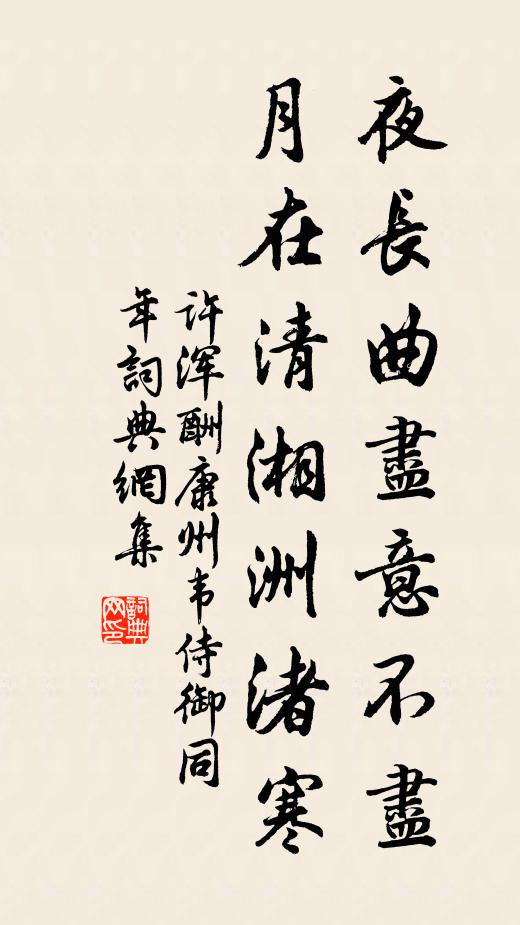 夜長曲盡意不盡
月在清湘洲渚寒
许浑酬康州韦侍御同
年詞典網集
詞典
网印